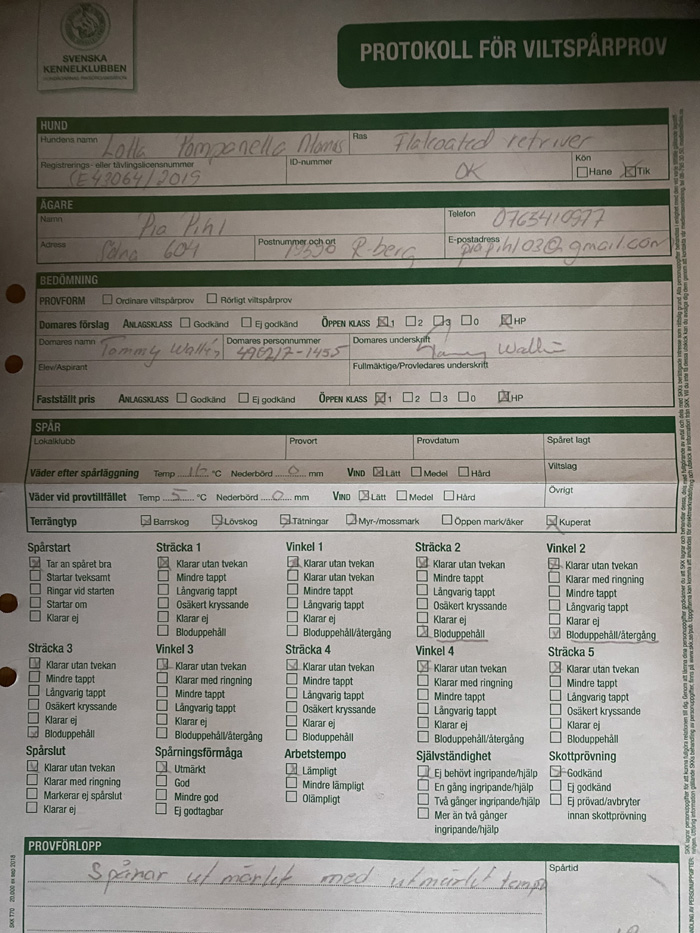 SVENSKA
KENNELKLUBBEN
PROTOKOLL FÖR VILTSPÅRPROV
HUND
Hundens namn Lolla Pompanella Ras Flatcoated retriver
Registrerings- eller tävlingslicensnummer ID-nummer OK Kön
SE43064/2019 Hane Tik
ÄGARE
Namn Pia Pihl Telefon 0763410977
Adress Solna 604 Postnummer och ort R-berg E-postadress piapihl03@gmail.com
BEDÖMNING
PROVFORM Ordinare viltspårprov Rörligt viltspårprov
Domares förslag ANLAGSKLASS Godkänd Ej godkänd ÖPPEN KLASS 1 2 3 0 HP
Domares namn Tommy Wallin Domares personnummer Domares underskrift
Elev/Aspirant Fullmäktige/Provledares underskrift
Fastställt pris ANLAGSKLASS Godkänd Ej godkänd ÖPPEN KLASS 1 2 3 0 HP
SPÅR
Lokalklubb Provort Provdatum Spåret lagt
Väder efter spårläggning Temp °C Nederbörd 0 mm VIND Lätt Medel Hård Viltslag
Väder vid provtillfället Temp 5 °C Nederbörd 0 mm VIND Lätt Medel Hård Övrigt
Terrängtyp Barrskog Lövskog Tätningar Myr-/mossmark Öppen mark/åker Kuperat
Spårstart
Tar an spåret bra
Startar tveksamt
Ringar vid starten
Startar om
Klarar ej
Sträcka 1
Klarar utan tvekan
Mindre tappt
Långvarig tappt
Osäkert kryssande
Klarar ej
Bloduppehåll
Vinkel 1
Klarar utan tvekan
Klarar utan tvekan
Mindre tappt
Långvarig tappt
Klarar ej
Bloduppehåll/återgång
Sträcka 2
Klarar utan tvekan
Mindre tappt
Långvarig tappt
Osäkert kryssande
Klarar ej
Bloduppehåll
Vinkel 2
Klarar utan tvekan
Klarar med ringning
Mindre tappt
Långvarig tappt
Klarar ej
Bloduppehåll/återgång
Sträcka 3
Klarar utan tvekan
Mindre tappt
Långvarig tappt
Osäkert kryssande
Klarar ej
Bloduppehåll
Vinkel 3
Klarar utan tvekan
Klarar med ringning
Mindre tappt
Långvarig tappt
Klarar ej
Bloduppehåll/återgång
Sträcka 4
Klarar utan tvekan
Mindre tappt
Långvarig tappt
Osäkert kryssande
Klarar ej
Bloduppehåll
Vinkel 4
Klarar utan tvekan
Klarar med ringning
Mindre tappt
Långvarig tappt
Klarar ej
Bloduppehåll/återgång
Sträcka 5
Klarar utan tvekan
Mindre tappt
Långvarig tappt
Osäkert kryssande
Klarar ej
Bloduppehåll
Spårslut
Klarar utan tvekan
Klarar med ringning
Markerar ej spårslut
Klarar ej
Spårningsförmåga
Utmärkt
God
Mindre god
Ej godtagbar
Arbetstempo
Lämpligt
Mindre lämpligt
Olämpligt
Självständighet
Ej behövt ingripande/hjälp
En gång ingripande/hjälp
Två gånger ingripande/hjälp
Mer än två gånger
ingripande/hjälp
Skottprövning
Godkänd
Ej godkänd
Ej prövad/avbryter
innan skottprövning
PROVFÖRLOPP
Spårar ut märket med utmärlet temp
Spårtid
SKK T70 20.000 ex sep 2018